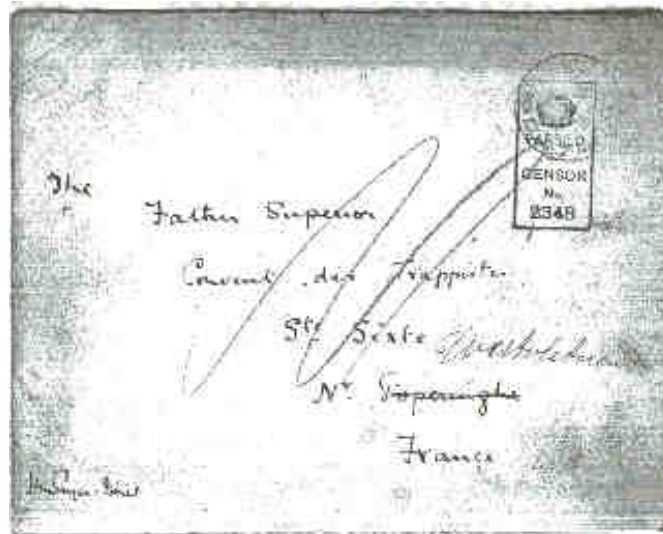 PASSED
CENSOR
No.
2348
The
Father Superior
Convent des Trappistes
Ste Sixte
Nr. Poperinghe
France